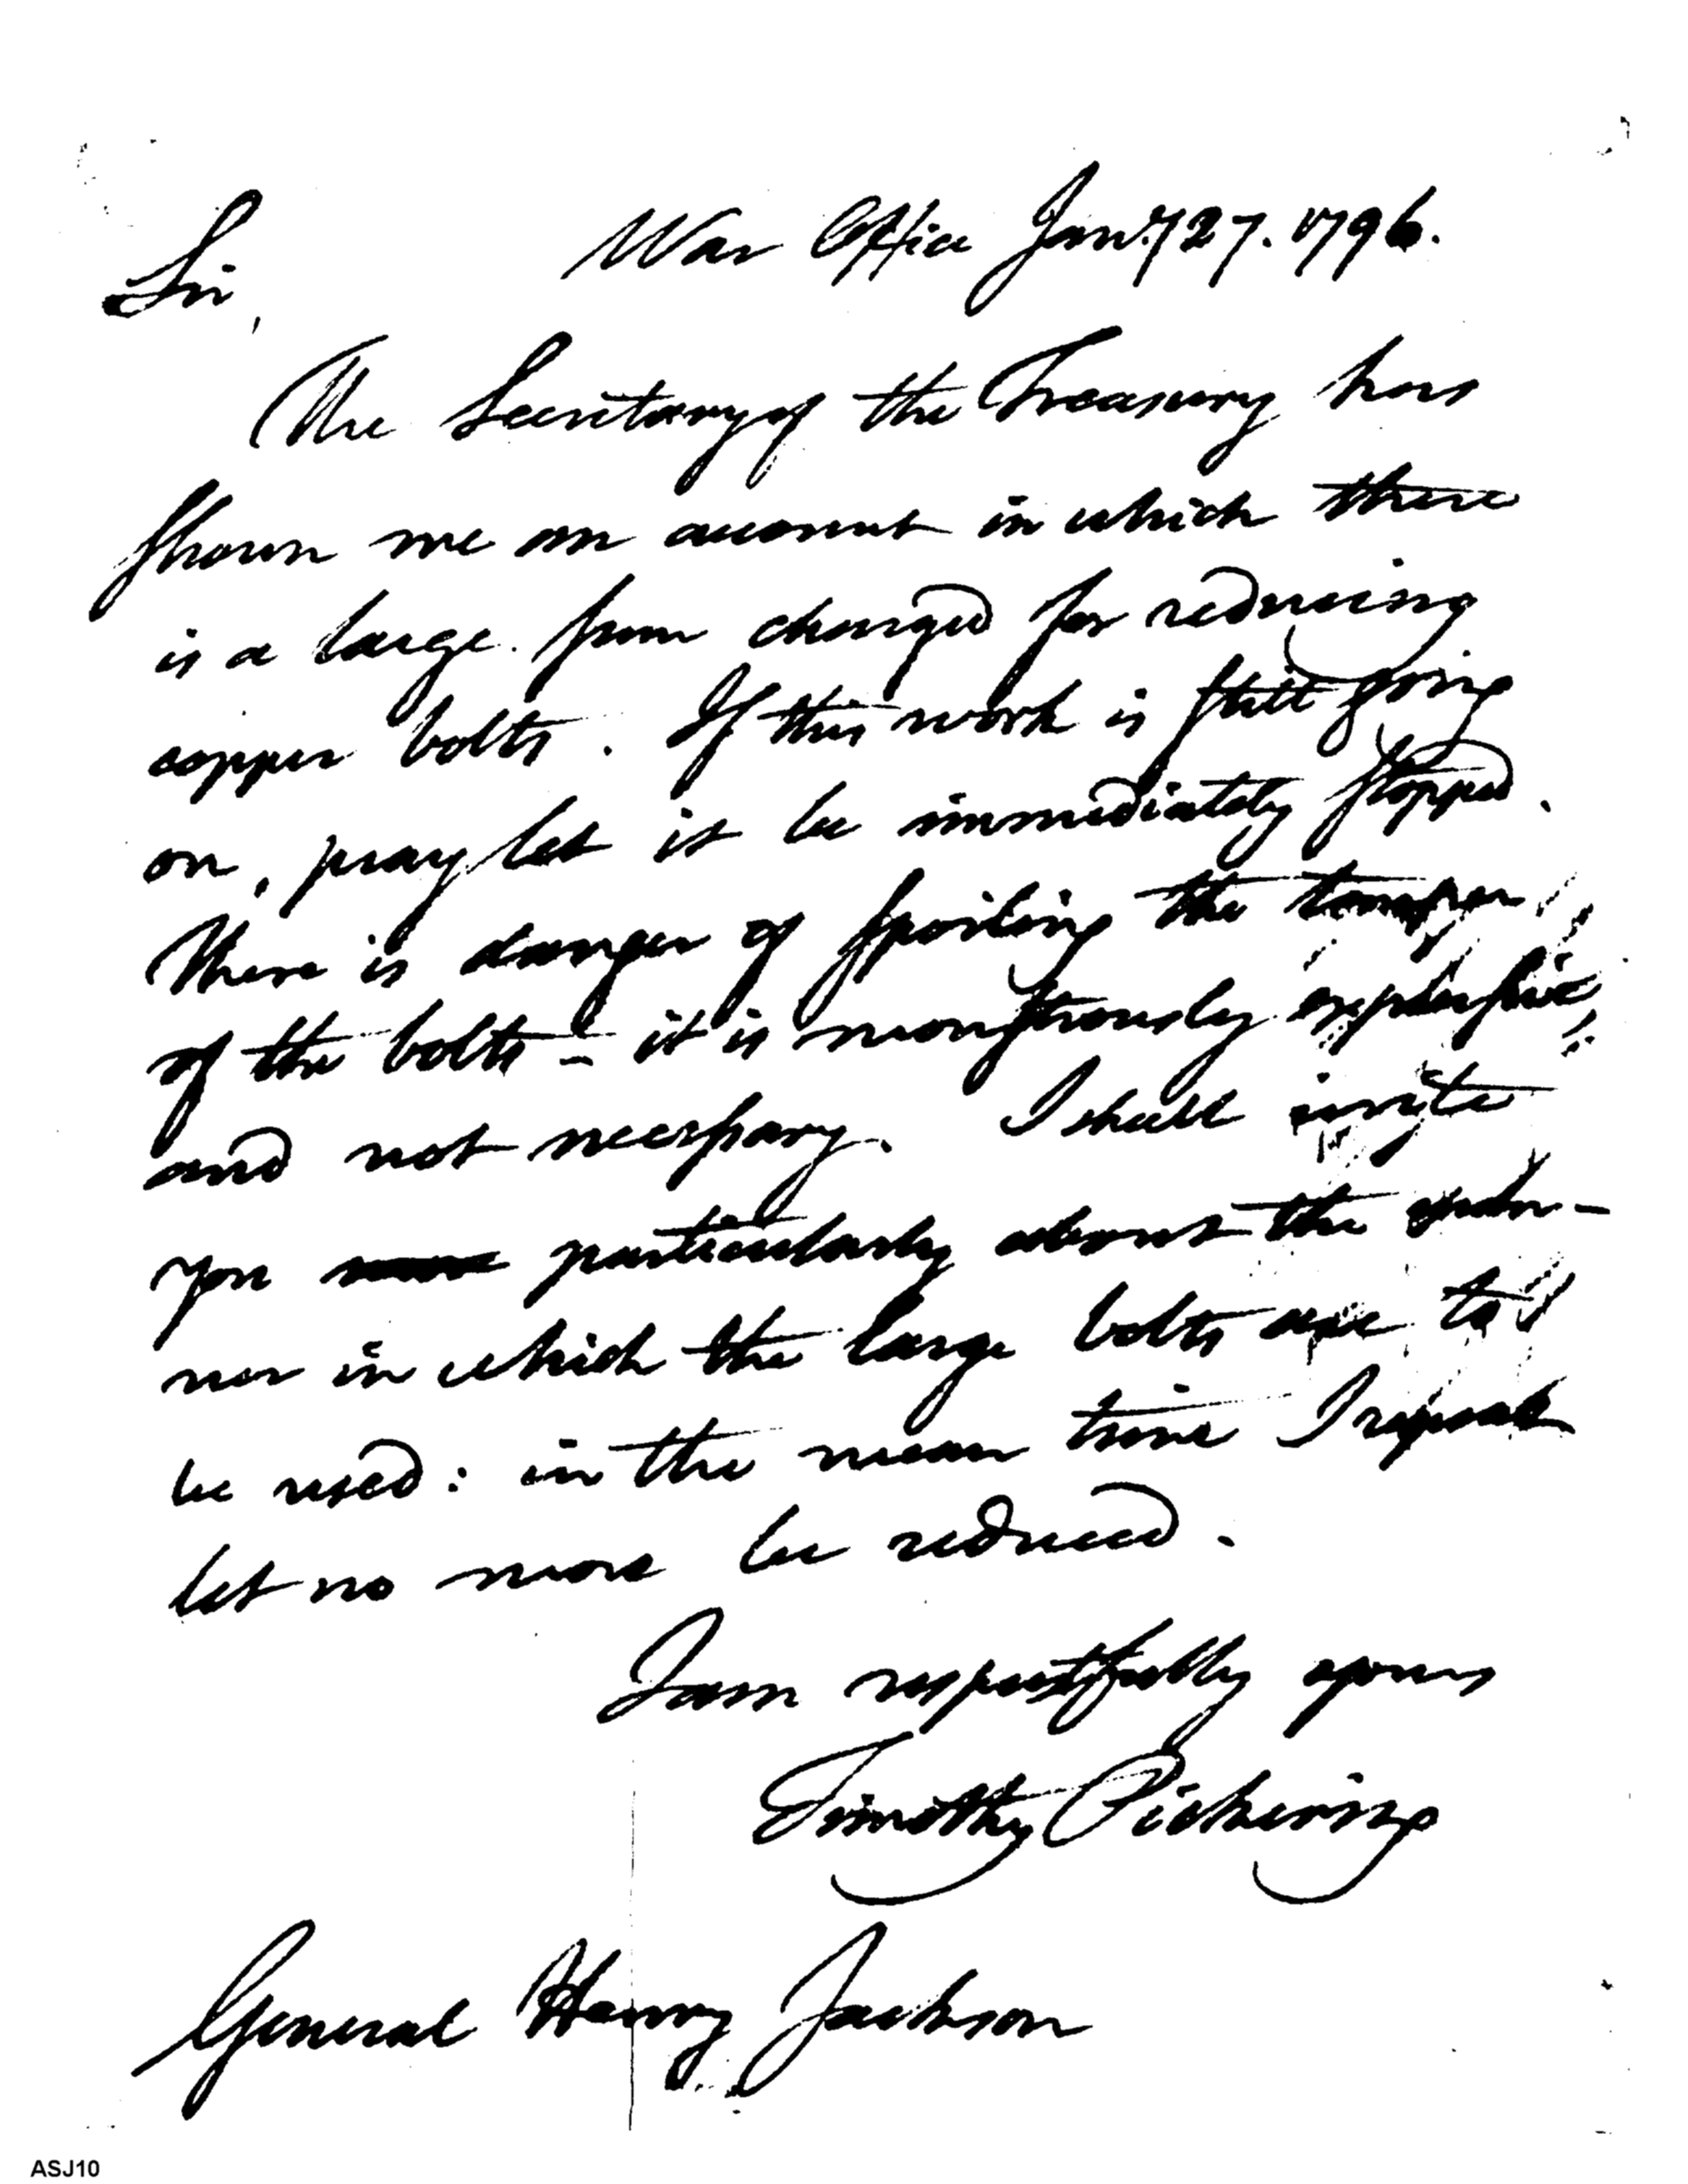 War Office Jany 27. 1796.
Sir,
The Secretary of the Treasury has
shown me an account in which there
is a large sum charged for reducing
copper bolts. If this work is still going
on, pray let it be immediately stopped.
There is danger of spoiling the temper
of the bolts - it is monstrously expensive,
and not necessary. I shall write
you particularly about the man-
ner in which the large bolts are to
be used: in the mean time I request
let no more be reduced.
I am respectfully yours
Timothy Pickering
General Henry Jackson
ASJ10